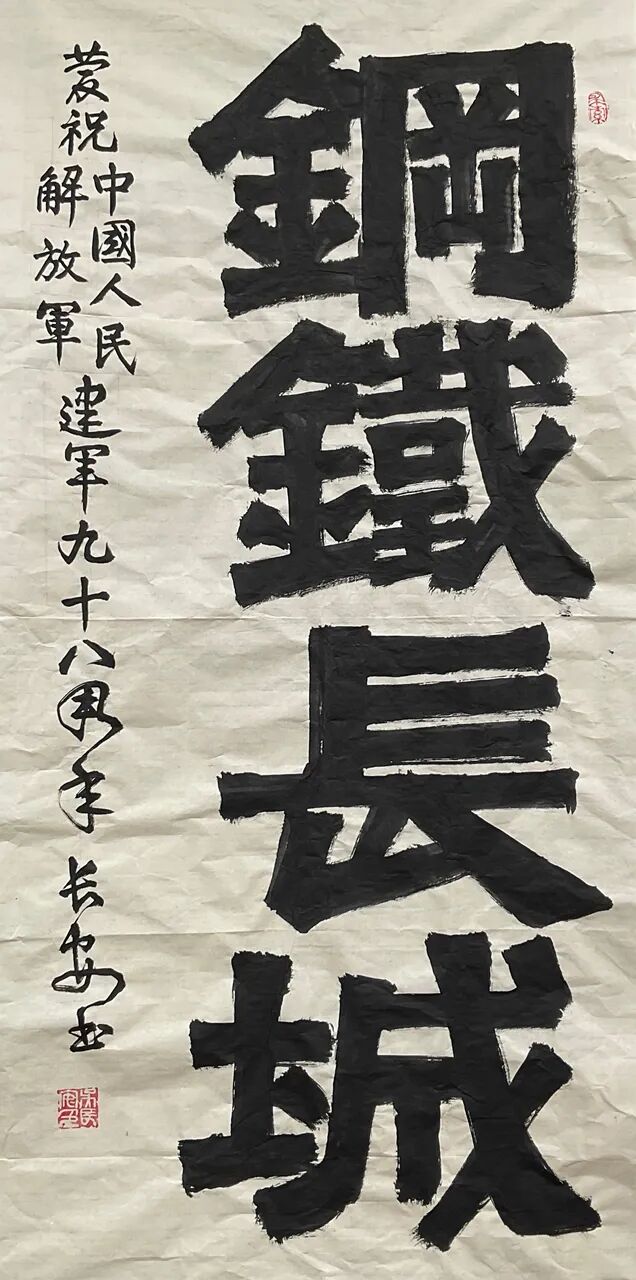 鋼鐵長城
慶祝中國人民解放軍建军九十八周年 长安书